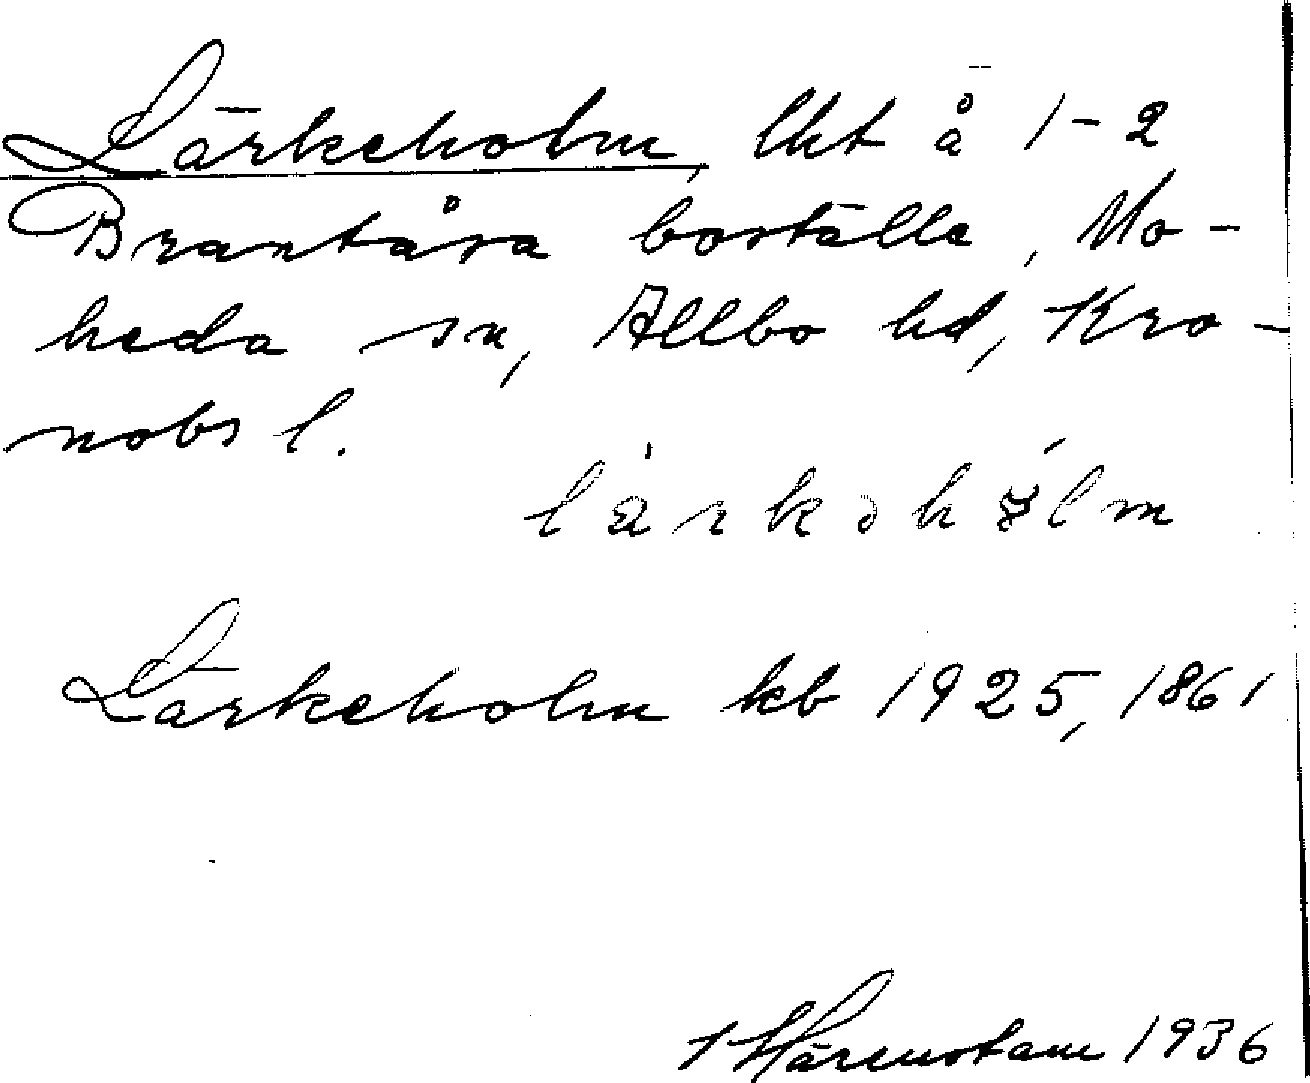 Lärkeholm, lht å 1-2
Brantåsa boställe, Mo-
heda sn, Allbo hd, Kro-
nobs l.
lärkəhålm
Lärkeholm kb 1925, 1861
Härenstam 1936